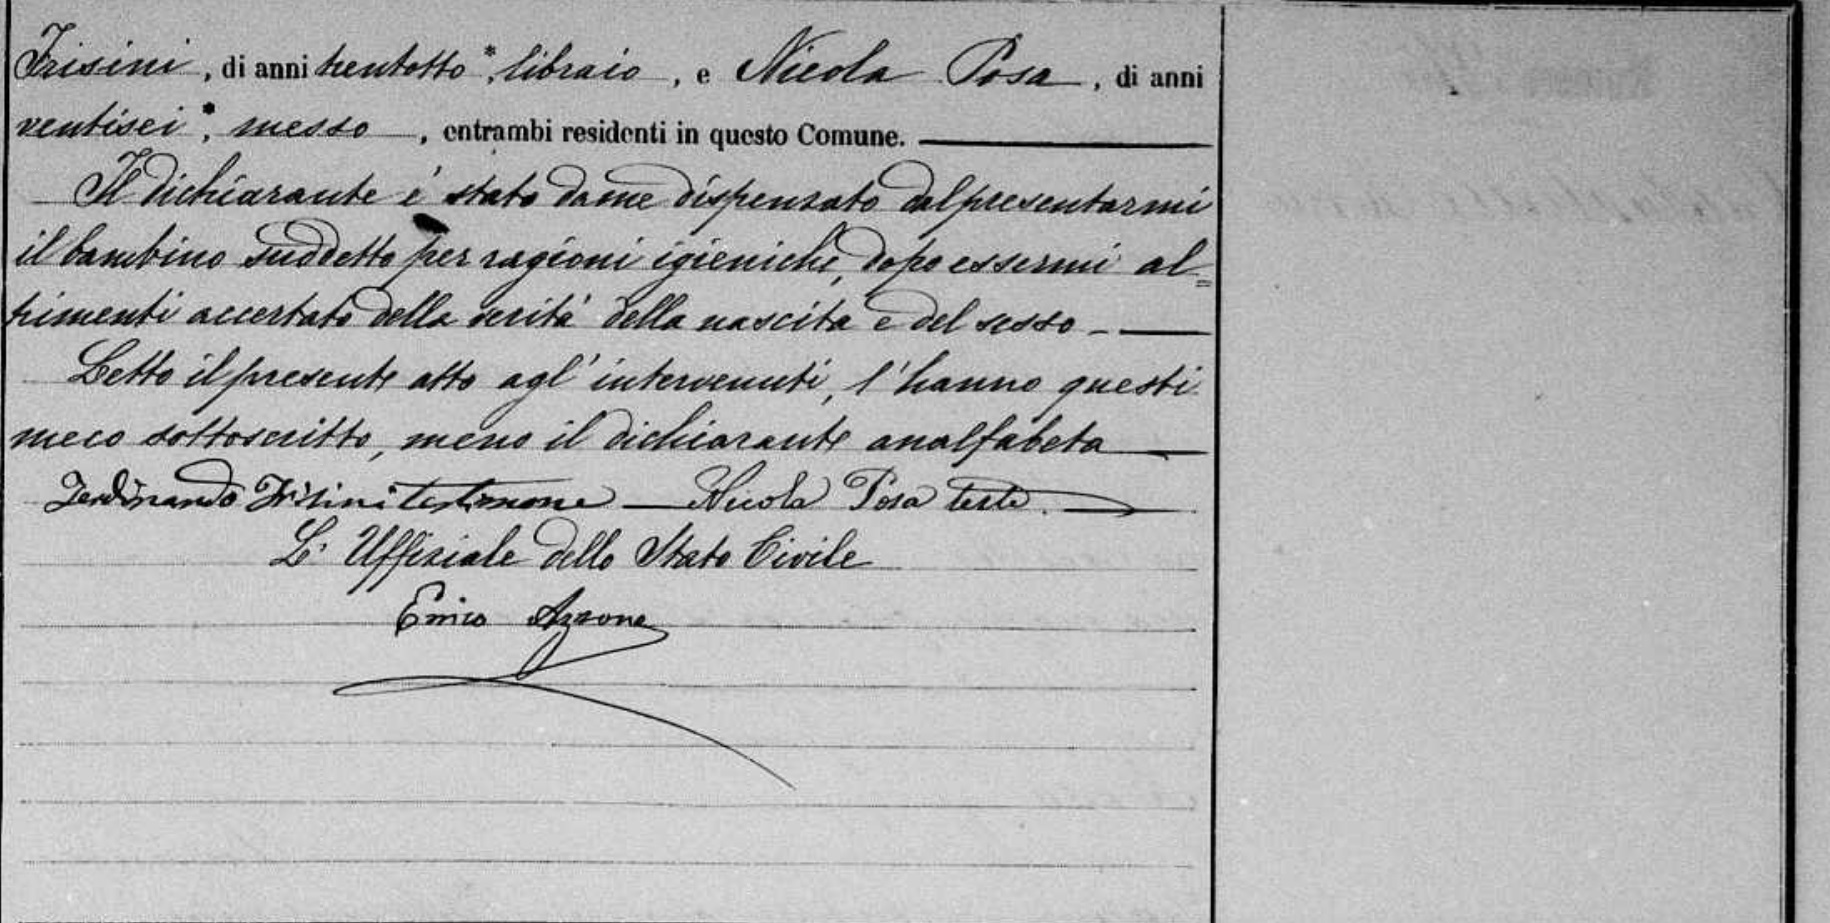 Frisini, di anni trentotto*, libraio, e Nicola Posa, di anni
ventisei*, messo, entrambi residenti in questo Comune.
Il dichiarante è stato da me dispensato dal presentarmi
il bambino suddetto per ragioni igieniche, dopo essermi al=
trimenti accertato della verità della nascita e del sesso -
Letto il presente atto agl'intervenuti, l'hanno questi
meco sottoscritto, meno il dichiarante analfabeta
Ferdinando Frisini testimone - Nicola Posa teste.
L'Uffiziale dello Stato Civile
Enrico Azzone